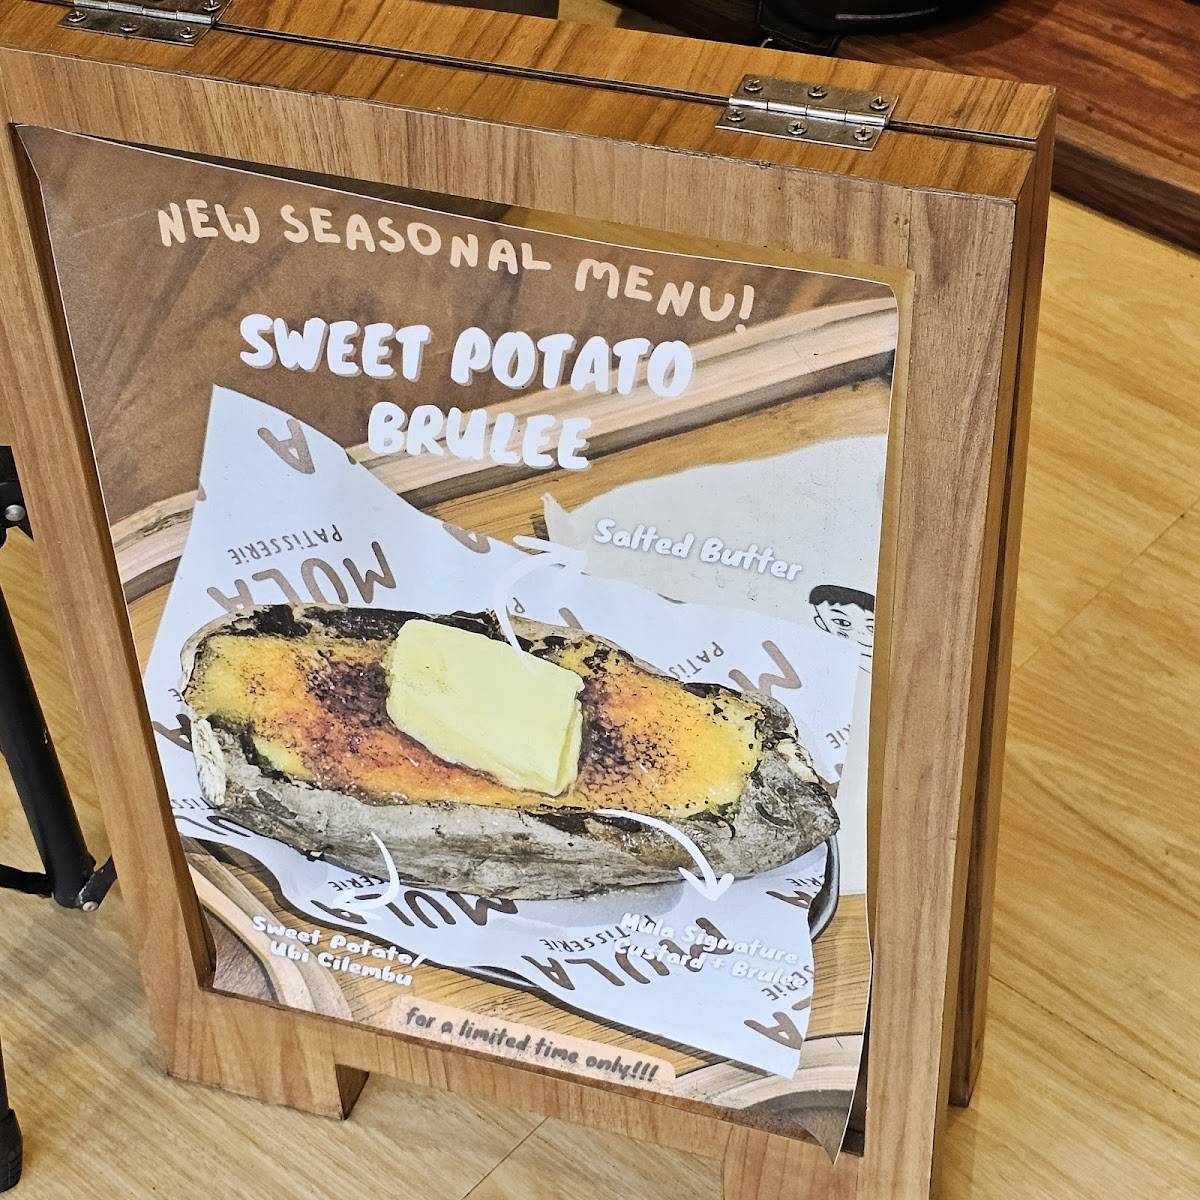 NEW SEASONAL MENU!
SWEET POTATO
BRULEE
Salted Butter
A
MULA
PATiSSERiE
MULA
PATiSSERiE
MULA
PATiSSERiE
Sweet Potato/
Ubi Cilembu
Mula Signature
Custard + Brulee
for a limited time only!!!